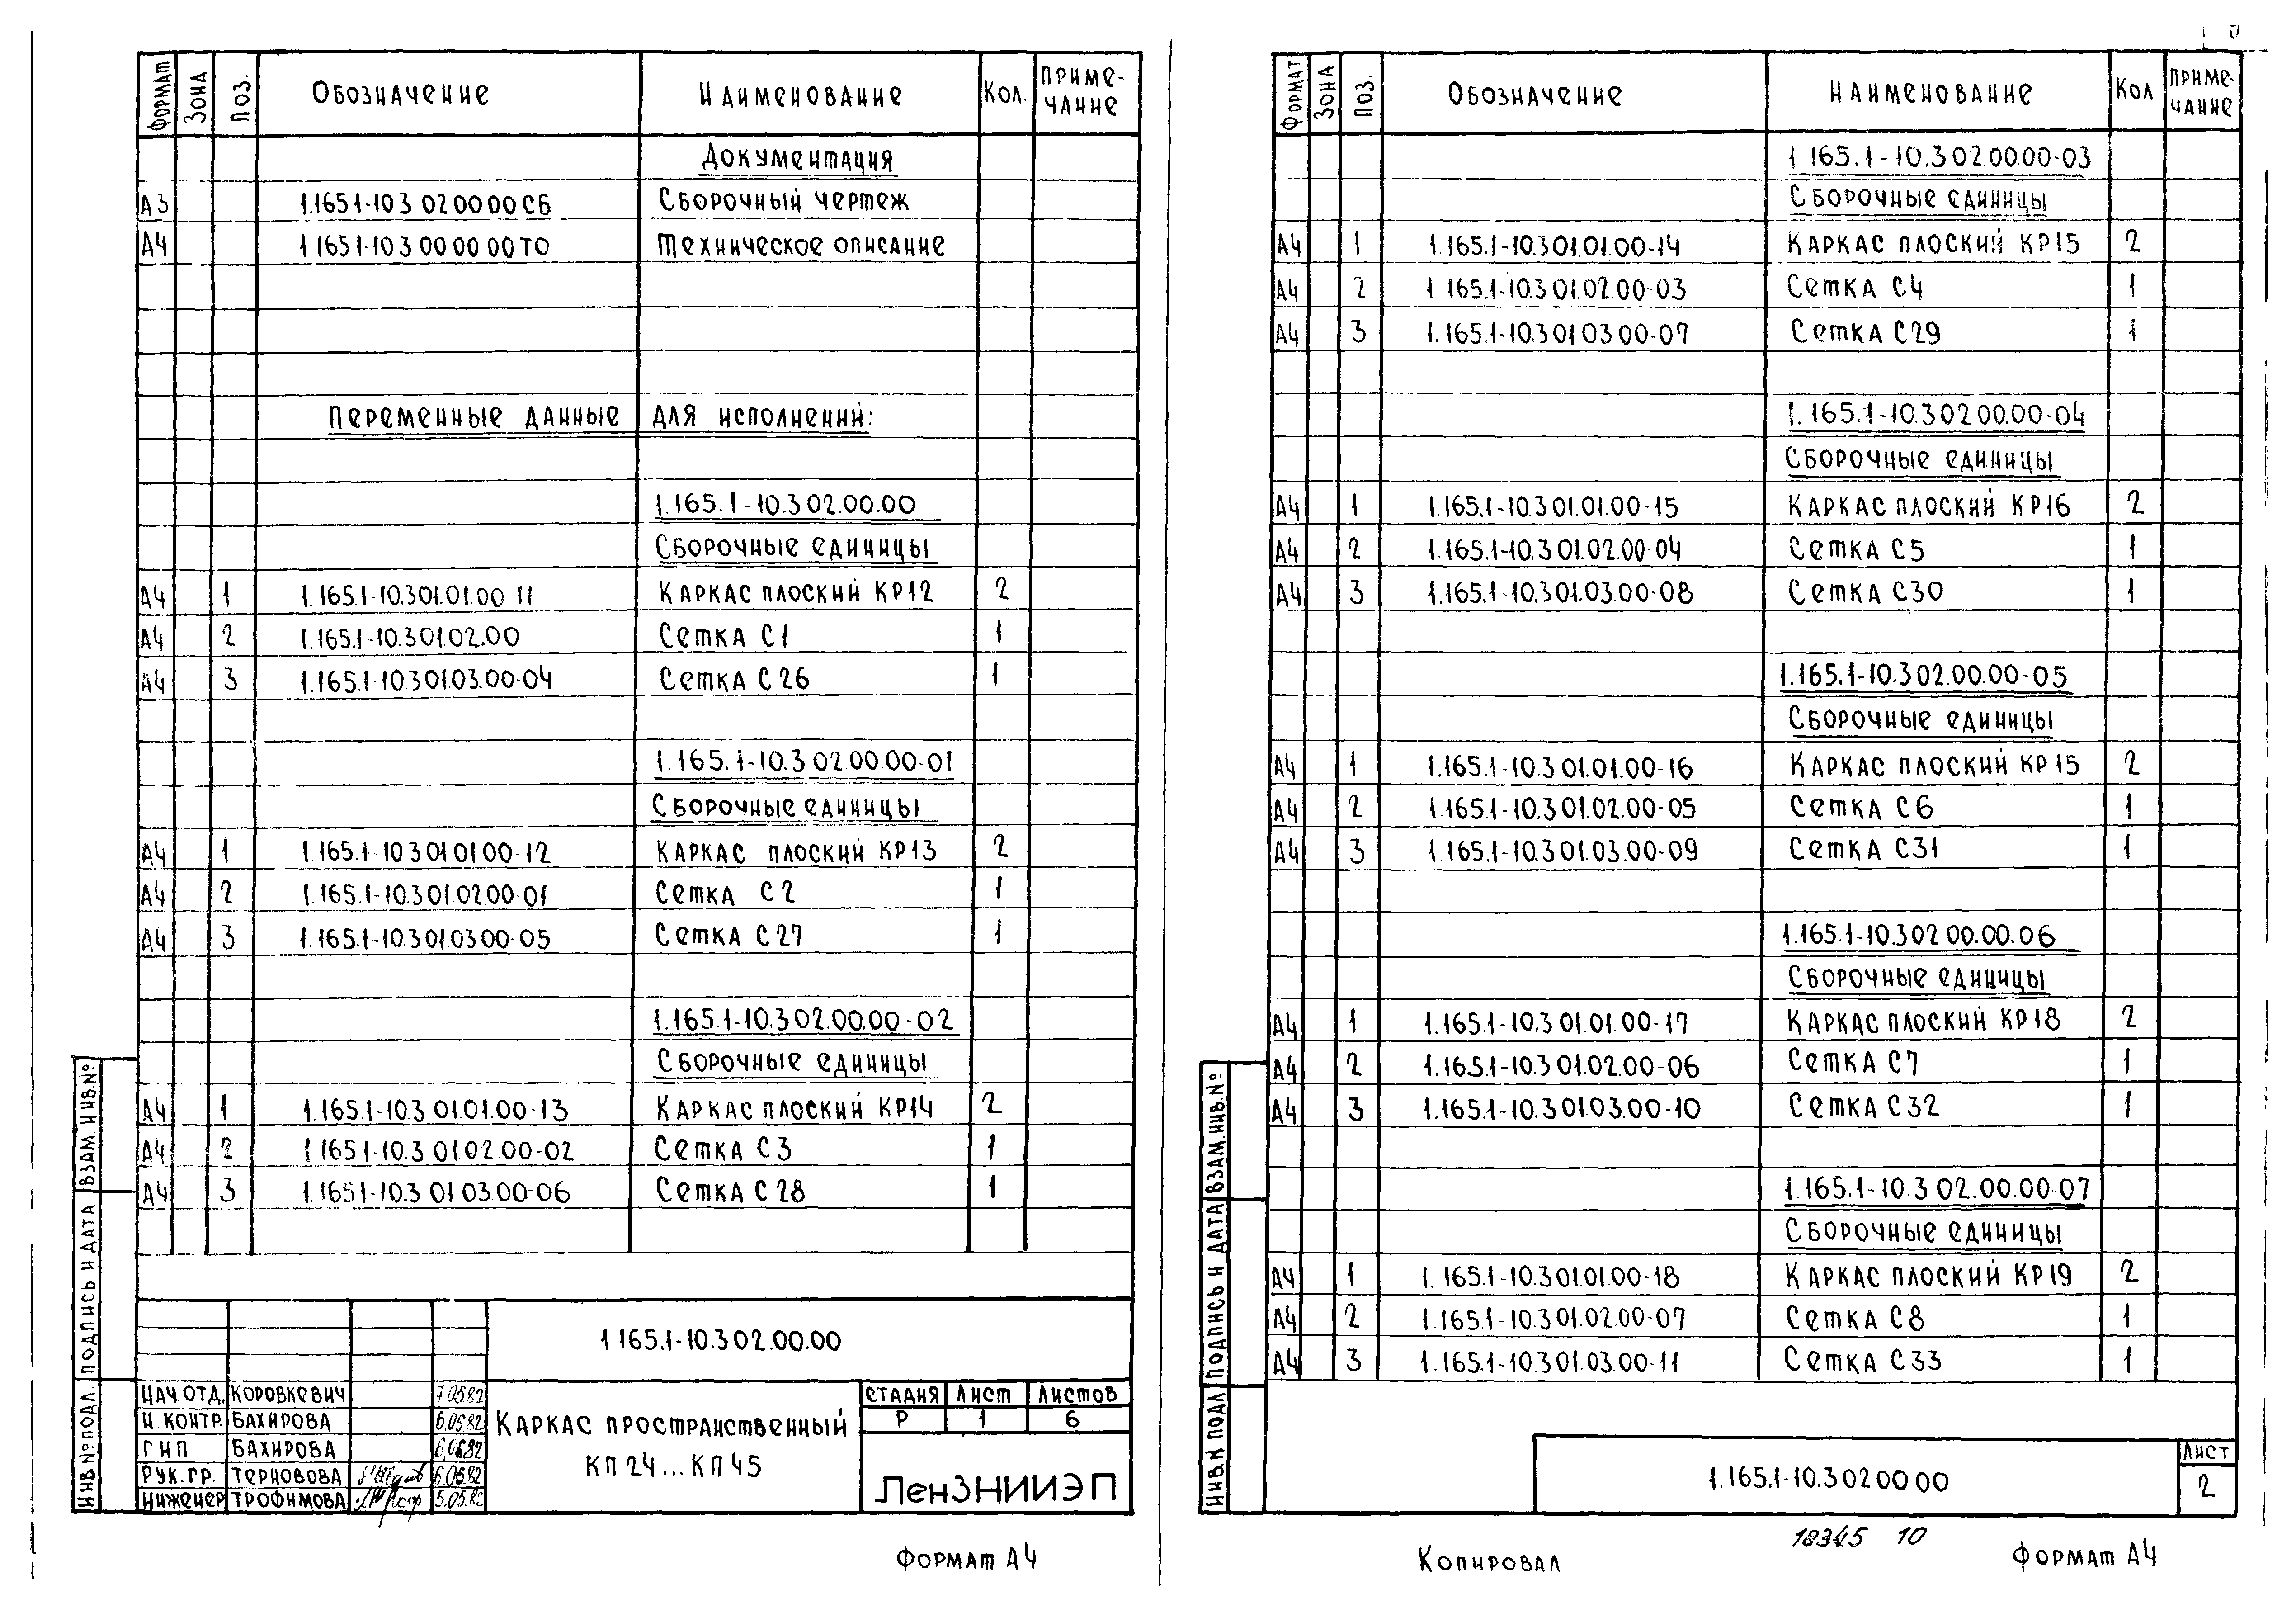 Формат Зона Поз. Обозначение Наименование Кол. Приме-
чание
Документация
А3 1.165.1-10.3 02 00 00 СБ Сборочный чертеж
А4 1 165 1-10.3 00 00 00 ТО Техническое описание
Переменные данные для исполнений:
1.165.1-10.3 02.00.00
Сборочные единицы
А4 1 1.165.1-10.3 01.01.00-11 Каркас плоский КР12 2
А4 2 1.165.1-10.3 01.02.00 Сетка С1 1
А4 3 1.165.1-10.3 01.03.00-04 Сетка С26 1
1.165.1-10.3 02.00.00-01
Сборочные единицы
А4 1 1.165.1-10.3 01 01 00-12 Каркас плоский КР13 2
А4 2 1.165.1-10.3 01.02 00-01 Сетка С2 1
А4 3 1.165.1-10.3 01.03 00-05 Сетка С27 1
1.165.1-10.3 02.00.00-02
Сборочные единицы
А4 1 1.165.1-10.3 01.01.00-13 Каркас плоский КР14 2
А4 2 1 165 1-10.3 01.02.00-02 Сетка С3 1
А4 3 1.165 1-10.3 01 03.00-06 Сетка С28 1
1 165.1-10.3 02.00.00
Нач.отд. Коровкевич 7.05.82
Н.контр. Бахирова 6.05.82
ГИП Бахирова 6.05.82
Рук.гр. Терновова 6.05.82
Инженер Трофимова 5.05.82
Каркас пространственный
КП24...КП45
Стадия Лист Листов
Р 1 6
ЛенЗНИИЭП
Инв.№подл. Подпись и дата Взам.инв.№
Формат А4
Формат Зона Поз. Обозначение Наименование Кол Приме-
чание
1 165.1-10.3 02.00.00-03
Сборочные единицы
А4 1 1.165.1-10.3 01.01.00-14 Каркас плоский КР15 2
А4 2 1 165.1-10.3 01.02.00-03 Сетка С4 1
А4 3 1.165.1-10.3 01 03 00-07 Сетка С29 1
1.165.1-10.3 02 00.00-04
Сборочные единицы
А4 1 1.165.1-10.3 01.01.00-15 Каркас плоский КР16 2
А4 2 1.165.1-10.3 01.02.00-04 Сетка С5 1
А4 3 1.165.1-10.3 01.03.00-08 Сетка С30 1
1.165.1-10.3 02.00.00-05
Сборочные единицы
А4 1 1.165.1-10.3 01.01.00-16 Каркас плоский КР15 2
А4 2 1.165.1-10.3 01.02.00-05 Сетка С6 1
А4 3 1.165.1-10.3 01.03.00-09 Сетка С31 1
1.165.1-10.3 02 00.00.06
Сборочные единицы
А4 1 1.165.1-10.3 01.01.00-17 Каркас плоский КР18 2
А4 2 1.165.1-10.3 01.02.00-06 Сетка С7 1
А4 3 1.165.1-10.3 01.03.00-10 Сетка С32 1
1.165.1-10.3 02.00.00-07
Сборочные единицы
А4 1 1.165.1-10.3 01.01.00-18 Каркас плоский КР19 2
А4 2 1.165.1-10.3 01.02.00-07 Сетка С8 1
А4 3 1.165.1-10.3 01.03.00-11 Сетка С33 1
1.165.1-10.3 02 00 00
Лист
2
Инв.№ подл Подпись и дата Взам.инв.№
18345 10
Копировал Формат А4